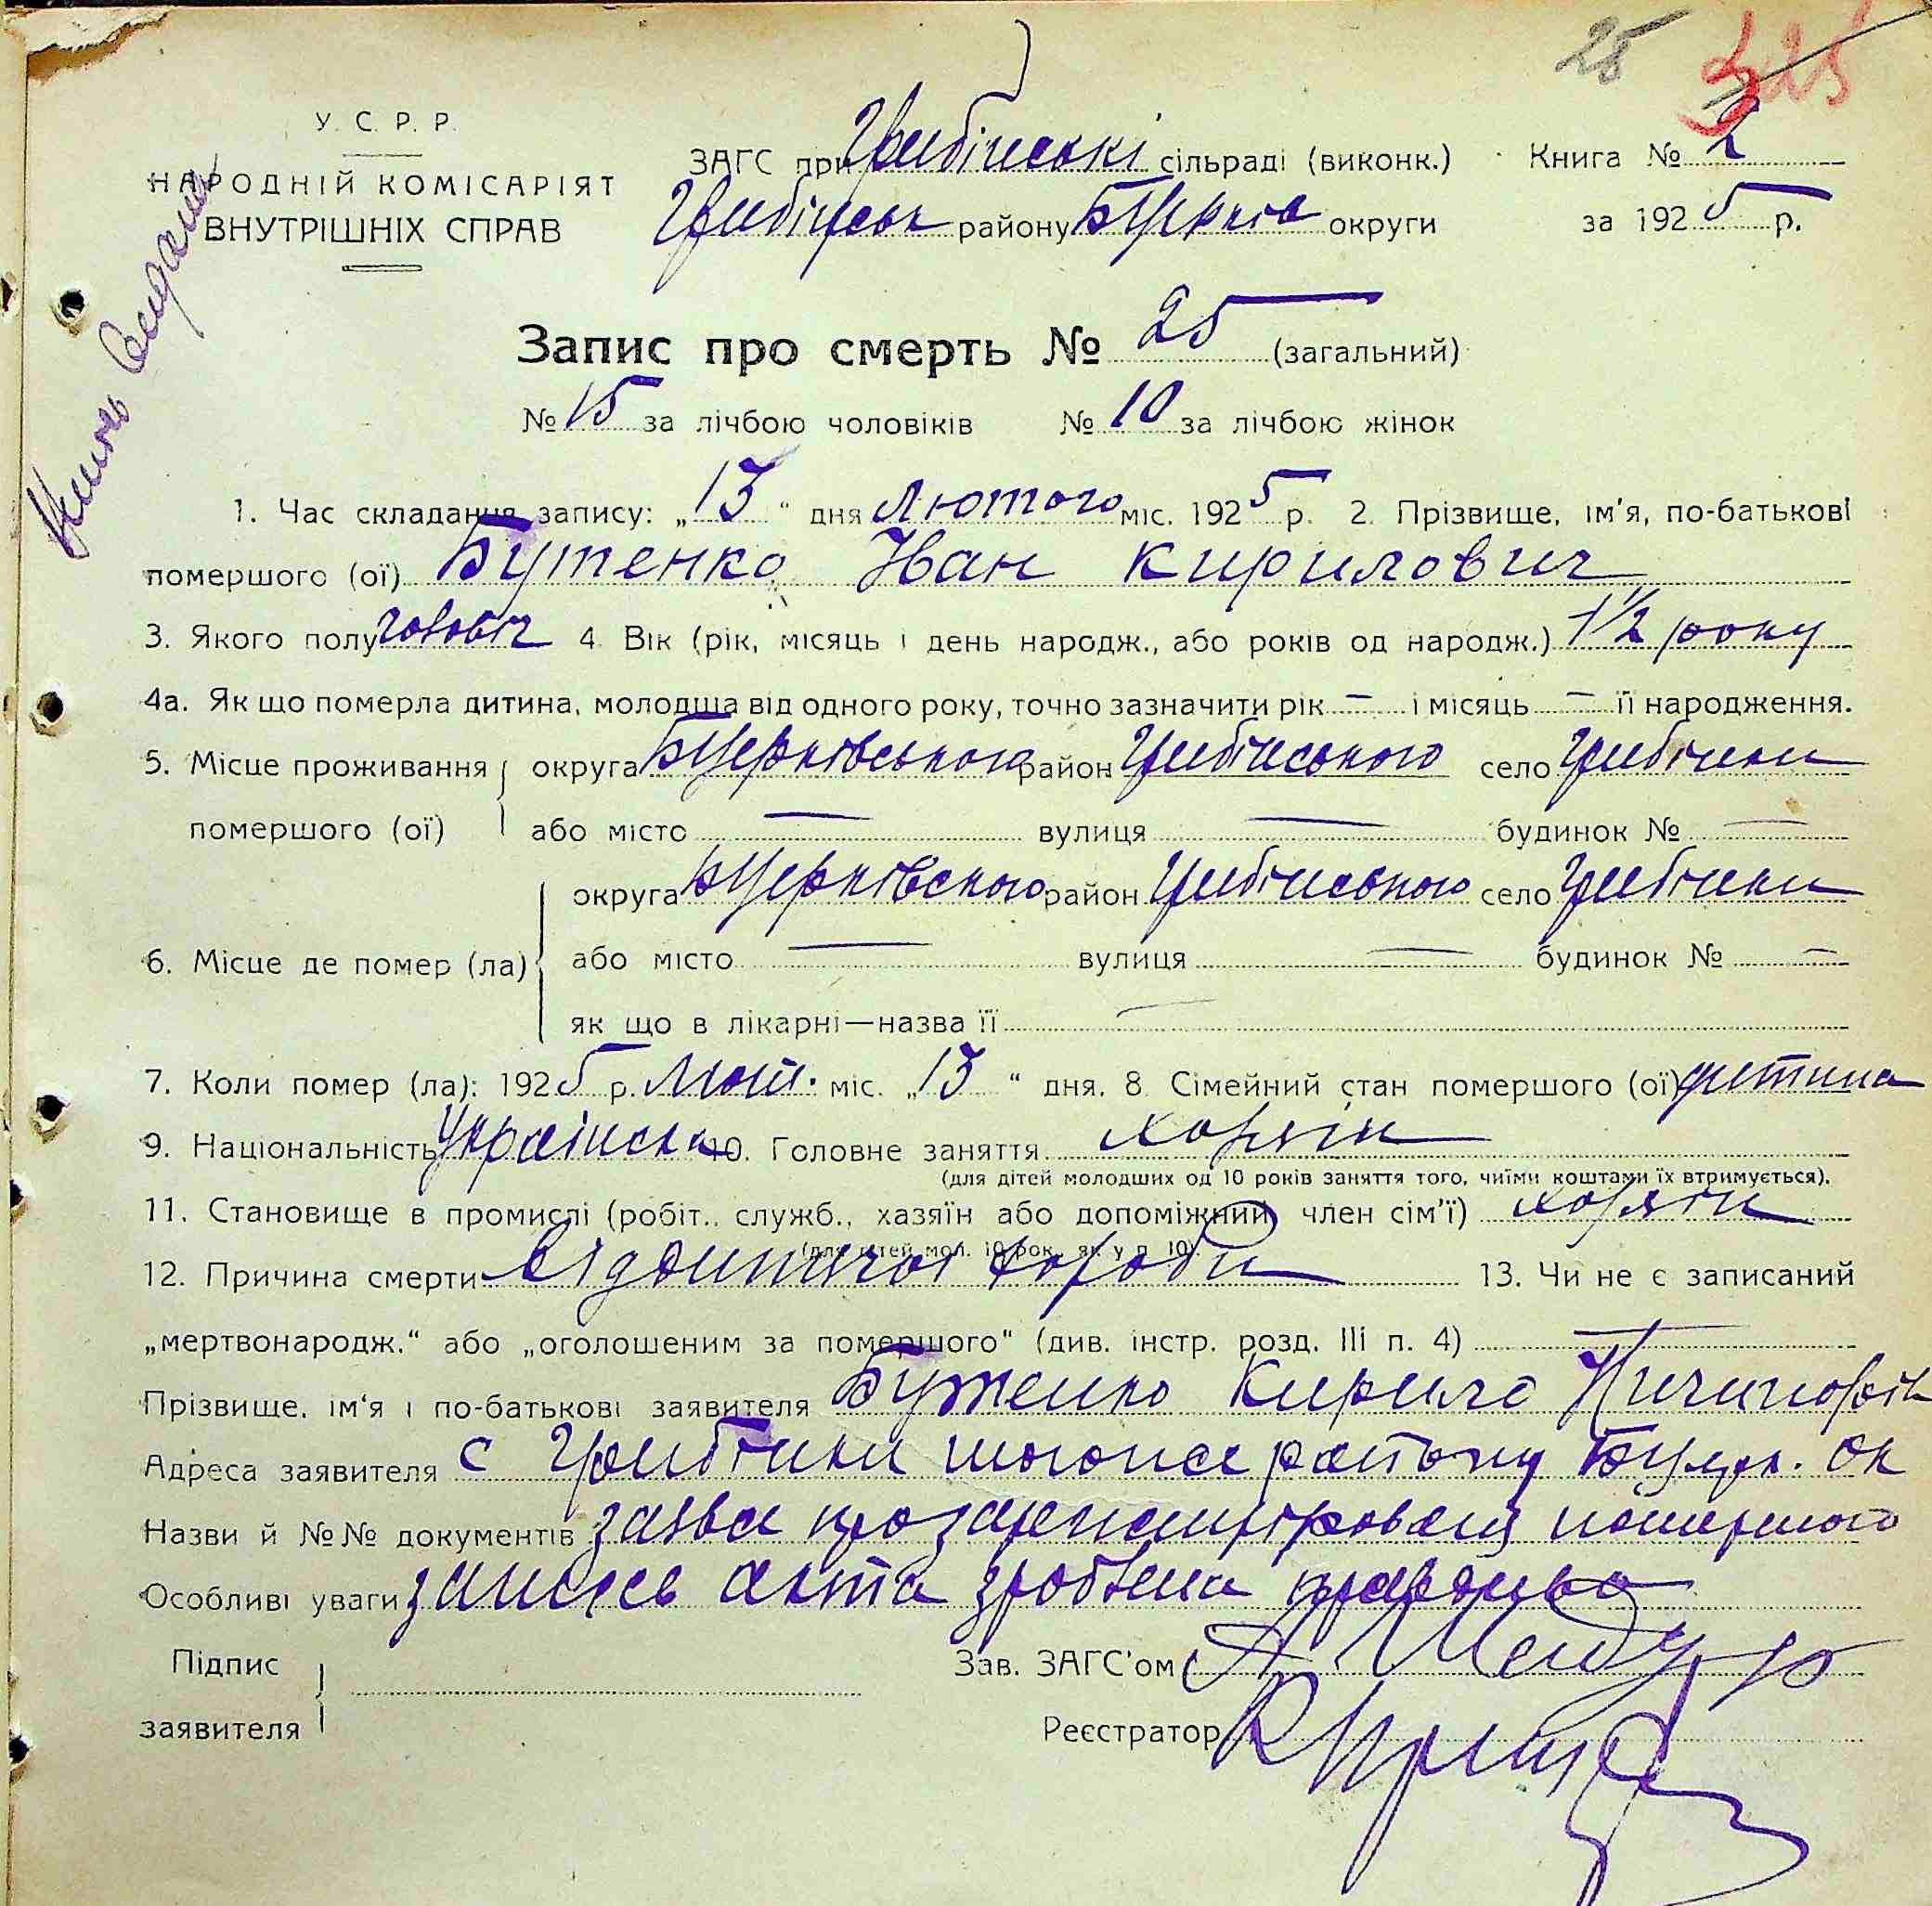 25 325
У. С. Р. Р.
НАРОДНІЙ КОМІСАРІЯТ
ВНУТРІШНІХ СПРАВ
ЗАГС при Гребінські сільраді (виконк.) Книга № 2
Гребінськ району БЦерків округи за 1925 р.
Запис про смерть № 25 (загальний)
№ 15 за лічбою чоловіків № 10 за лічбою жінок
1. Час складання запису: „13“ дня Лютого міс. 1925 р. 2. Прізвище, ім'я, по-батькові
помершого (ої) Бутенко Іван Кирилович
3. Якого полу чоловіч 4. Вік (рік, місяць і день народж., або років од народж.) 1 1/2 року
4а. Як що померла дитина, молодща від одного року, точно зазначити рік — і місяць — її народження.
5. Місце проживання округа БЦерківського район Гребінського село Гребінки
помершого (ої) або місто — вулиця — будинок № —
округа БЦерківського район Гребінського село Гребінки
6. Місце де помер (ла) або місто — вулиця — будинок № —
як що в лікарні—назва її —
7. Коли помер (ла): 1925 р. Лют. міс. „13“ дня. 8. Сімейний стан помершого (ої) дитина
9. Національність Українськ 10. Головне заняття
(для дітей молодших од 10 років заняття того, чиїми коштами їх втримується).
11. Становище в промислі (робіт., служб., хазяїн або допоміжний член сім'ї)
(для дітей мол. 10 рок., як у п. 10).
12. Причина смерти від дитячої хороби 13. Чи не є записаний
„мертвонародж.“ або „оголошеним за помершого“ (див. інстр. розд. III п. 4) —
Прізвище, ім'я і по-батькові заявителя Бутенко Кирило
Адреса заявителя с Гребінки того ж району БЦерк. ок
Назви й №№ документів заява про зарегистріровання помершого
Особливі уваги запись акта зроблена правдиво
Підпис Зав. ЗАГС'ом
заявителя Реєстратор